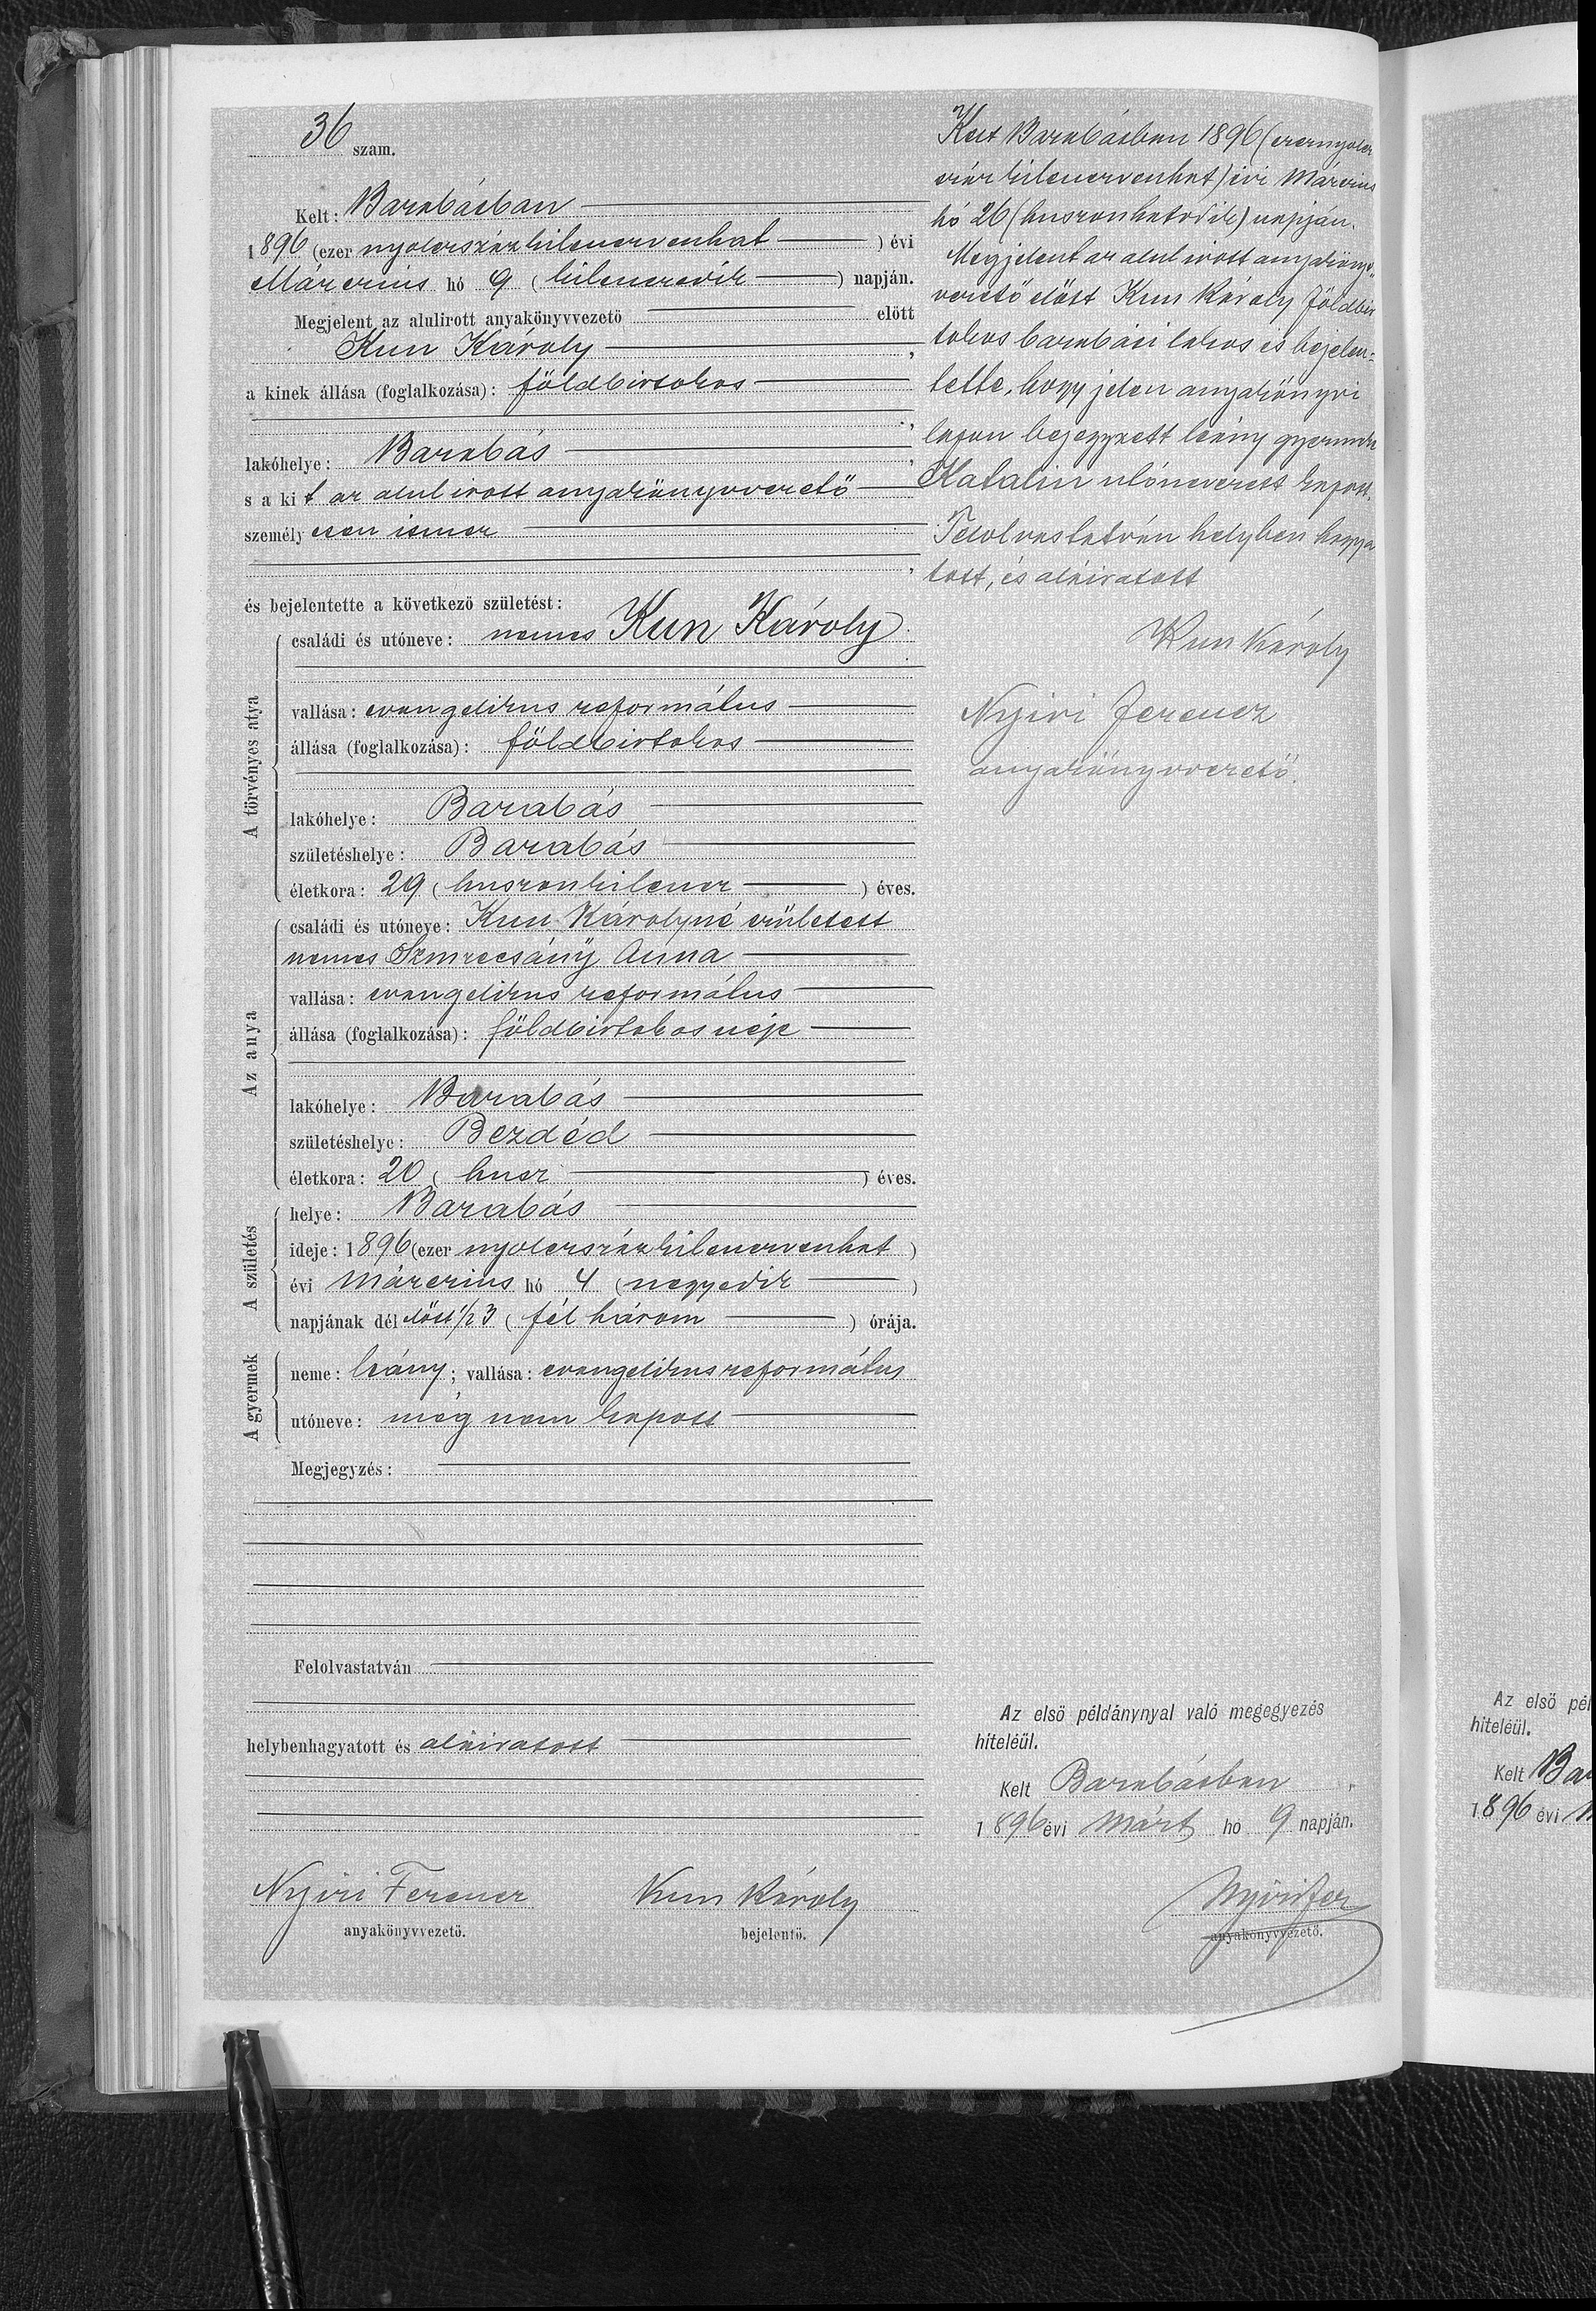 36 szam.
Kelt: Barabásban
1896 (ezer nyolczszázkilenczvenhat) évi
Márczius hó 9 (kilenczedik) napján.
Megjelent az alulirott anyakönyvvezető előtt
Kun Károly,
a kinek állása (foglalkozása): földbirtokos
lakóhelye: Barabás,
s a kit az alul irott anyakönyvvezető
személyesen ismer
,
és bejelentette a következő születést:
A törvényes atya
családi és utóneve: nemes Kun Károly
vallása: evangelikus református
állása (foglalkozása): földbirtokos
lakóhelye: Barabás
születéshelye: Barabás
életkora: 29 (huszonkilencz) éves.
Az anya
családi és utóneve: Kun Károlyné született
nemes Szmrecsány Anna
vallása: evangelikus református
állása (foglalkozása): földbirtokos neje
lakóhelye: Barabás
születéshelye: Bezdéd
életkora: 20 (husz) éves.
A születés
helye: Barabás
ideje: 1896 (ezer nyolczszázkilenczvenhat)
évi Márczius hó 4 (negyedik)
napjának dél előtt 1/2 3 (fél három) órája.
A gyermek
neme: leány; vallása: evangelikus református
utóneve: még nem kapott
Megjegyzés:
Felolvastatván
helybenhagyatott és aláiratott
Nyiri Ferencz
anyakönyvvezető.
Kun Károly
bejelentő.
Kelt Barabásban 1896 (ezernyolcz
száz kilenczvenhat) évi Márczius
hó 26 (huszonhatodik) napján.
Megjelent az alul irott anyakönyv-
vezető előtt Kun Károly földbir
tokos barabási lakos és bejelen=
tette, hogy jelen anyakönyvi
lapon bejegyzett leány gyermek
Katalin utónevezett kapott.
Felolvastatván helyben hagya
tott, és aláiratott
Kun Károly
Nyiri Ferencz
anyakönyvvezető.
Az első példánynyal való megegyezés
hiteléül.
Kelt Barabásban
1896 évi Márt hó 9 napján.
Nyiri Fer
anyakönyvvezető.
Az első pél
hiteléül.
Kelt Bar
1896 évi M